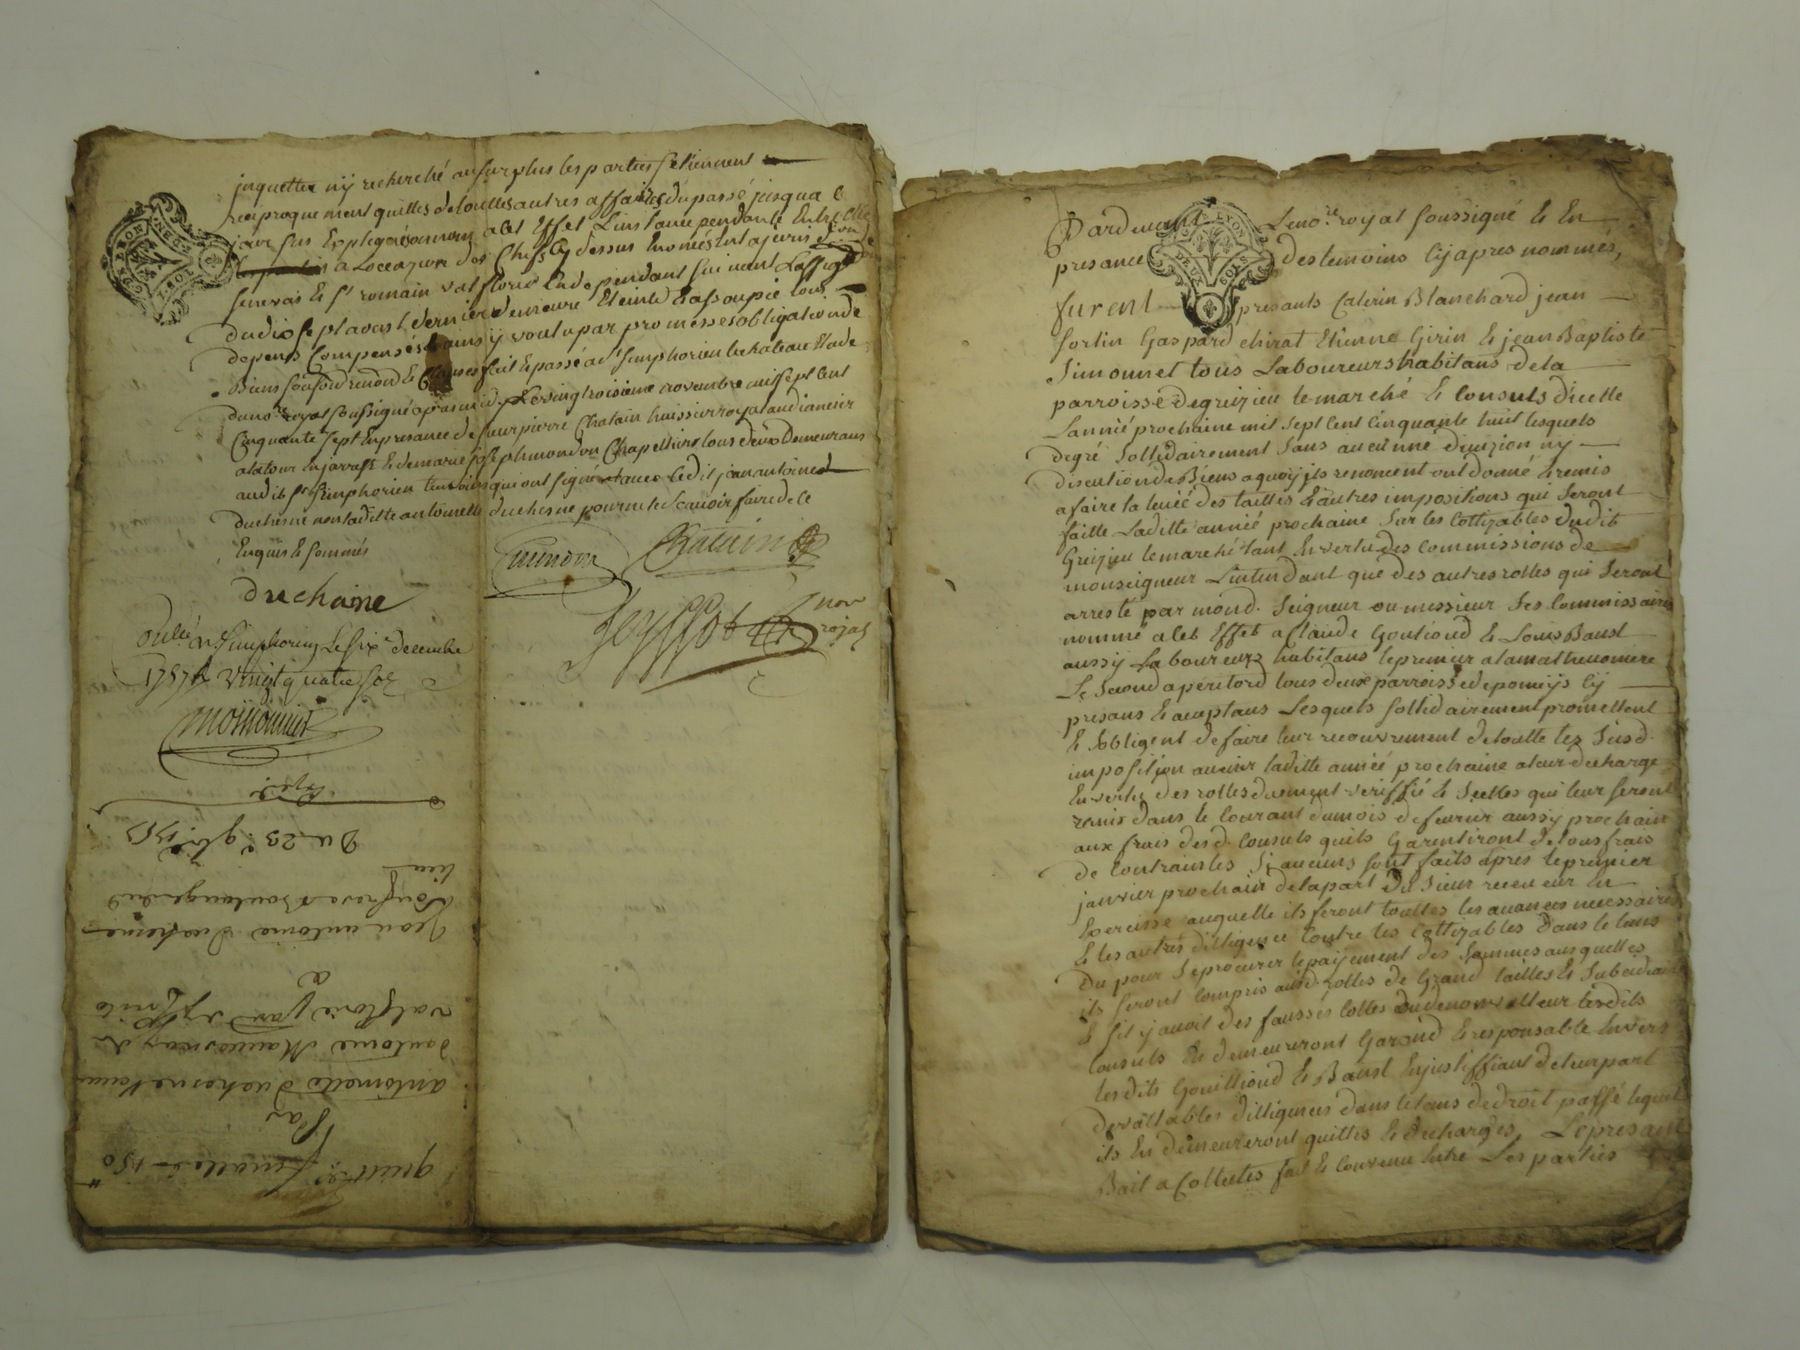 jnquetter ny recherché au surplus les parties se tiennent
reciproquement quittes de touttes autres affaires du passé jusqua ce
jour sus Expliqué a cet Effet Linstance pendante Entre Elle
a Loccazion des Chefs Cy dessus Enoncés
St romain valflorie Lad. dependant
demeure Eteinte & assoupie tous
depens Compensés ainsy voulu par promesses obligation de
Biens soub.ond renon.d & Clauses fait & passé a St simphorien le chateau Etude
du no.re royal soussigné apres midy Le vingtroisieme novembre mil sept Cent
Cinquante sept En presance de sieur pierre Chatain huissier royal audiancier
& de marie joseph mondon Chapellier tous deux Demeurans
audit St simphorien temoins qui ont signé avec Ledit jean antoine
duchesne non laditte antoinette duchesne pour ne le scavoir faire de ce
Enquis & sommés
Mondon Chatain
duchaine
nore royal
à St Simphorien Le six decembre
1757 R vingt quatre sols
Du 23e 9bre 1757
lieu
Jean antoine Duchesne
a
valflorie
antoine
antoinette Duchesne
Par
quitt.ce finalle 150
Pardevant Le no.re royal soussigné & En
presance des temoins Cy apres nommés,
furent presants Catérin Blanchard jean
fortin Gaspard chirat Etienne Girin & jean Baptiste
Simonnet tous Laboureurs habitans de la
parroisse de greizieu le marché & Consuls dicelle
Lannié prochaine mil sept Cent Cinquante huit lesquels
degré Sollidairement Sans aucunne divizion ny
discution de Biens a quoy jls renoncent ont donné & remis
a faire la levéé des tailles & autres impositions qui Seront
faitte Laditte annié prochaine Sur les Cottizables dudit
Greizieu le marché tant En vertu des Commissions de
monseigneur Lintendant que des autres rolles qui Seront
arresté par mond. Seigneur ou messieur Ses Commissaires
nommé a Cet Effet a Claude Goutioud & Louis Banst
aussy Laboureurs habitans le premier a lamathevoniere
Le Second a peritord tous deux parroisse de pomeijs Cy
presans & acceptans Lesquels sollidairement promettent
& obligent de faire leur recouvrement de toutte les Susd.
imposition aucier laditte année prochaine a leur decharge
En vertu des rolles duement veriffié & Scelles qui leur Seront
remis dans le Courant du mois de fevrier aussy prochain
aux frais desd. Consuls quils Garentiront de tous frais
de Contraintes Si aucuns sont faits apres le premier
janvier prochain de la part du Sieur receveur En
Exercisse auquelle ils feront touttes les avances necessaires
& les autres dilligence Contre les Cottizables Dans le tems
Du pour Se procurer le payement des Sommes ausquelles
ils Seront Compris ausd. rolles de Grand tailles & Subcidiaire
& Sil y avoit des fausses Cottes ou de non valleur lesdits
Consuls En demeureront Garand & responsable Envers
lesdits Goutlioud & Banst En justiffiant de leur part
de vallables dilligences dans le tems de droit passé lequel
ils En demeureront quittes & decharges, Le presant
Bail a Collectes fait & Convenu Entre Les parties